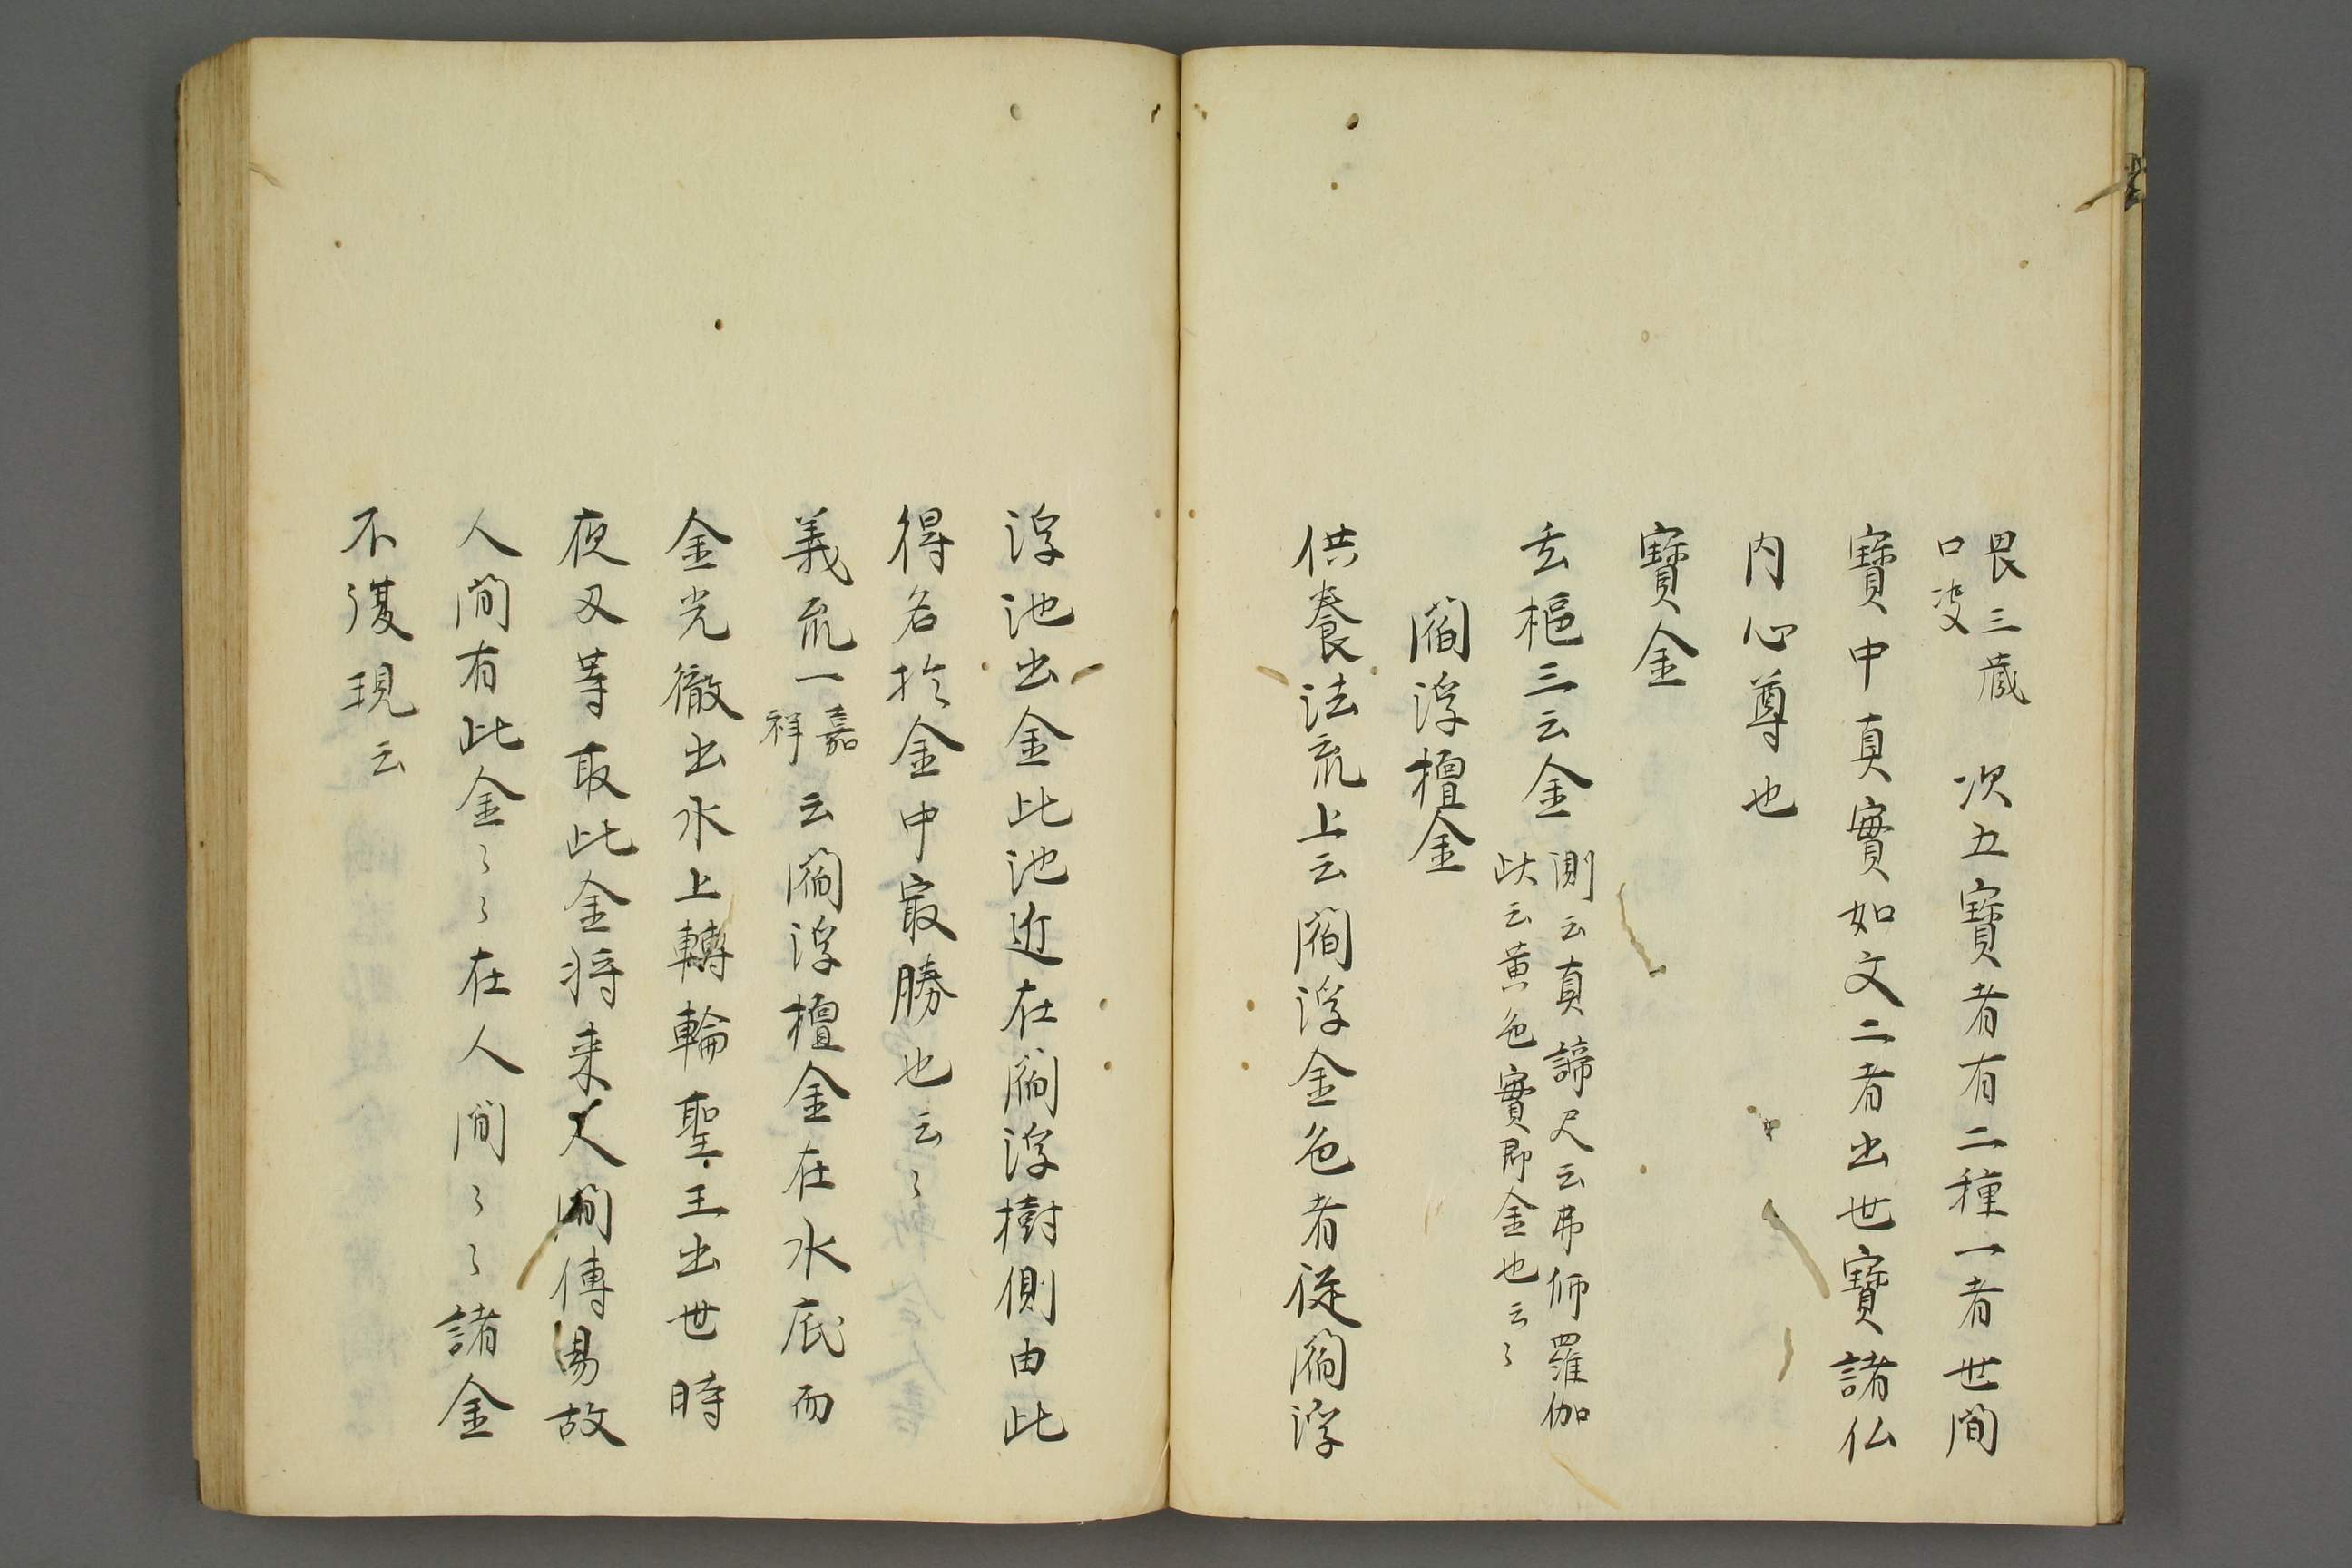 畏三蔵口决 次五寶者有二種一者世間
寶中真實如文二者出世寶諸仏
内心尊也
寶金
玄樞三云金 測云真諦尺云弗师羅伽此云黄色實即金也云々
閻浮檀金
供養法疏上云閻浮金色者従閻浮
浮池出金此池近在閻浮樹側由此
得名於金中冣勝也云々
義疏一嘉祥云閻浮檀金在水底而
金光徹出水上轉輪聖王出世時
夜叉等取此金将来人間傳易故
人間有此金々々在人間々々諸金
不復現云